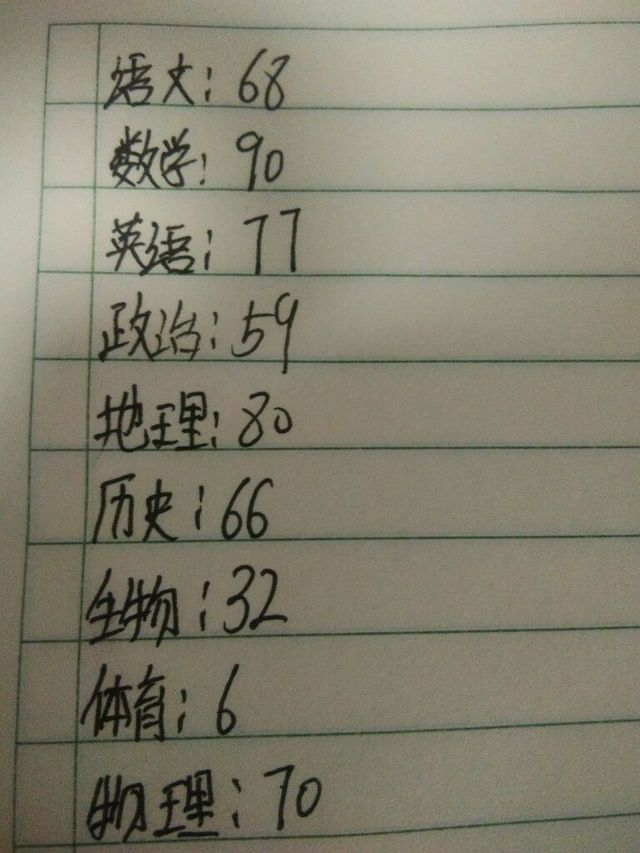 语文：68
数学：90
英语：77
政治：59
地理：80
历史：66
生物：32
体育：6
物理：70